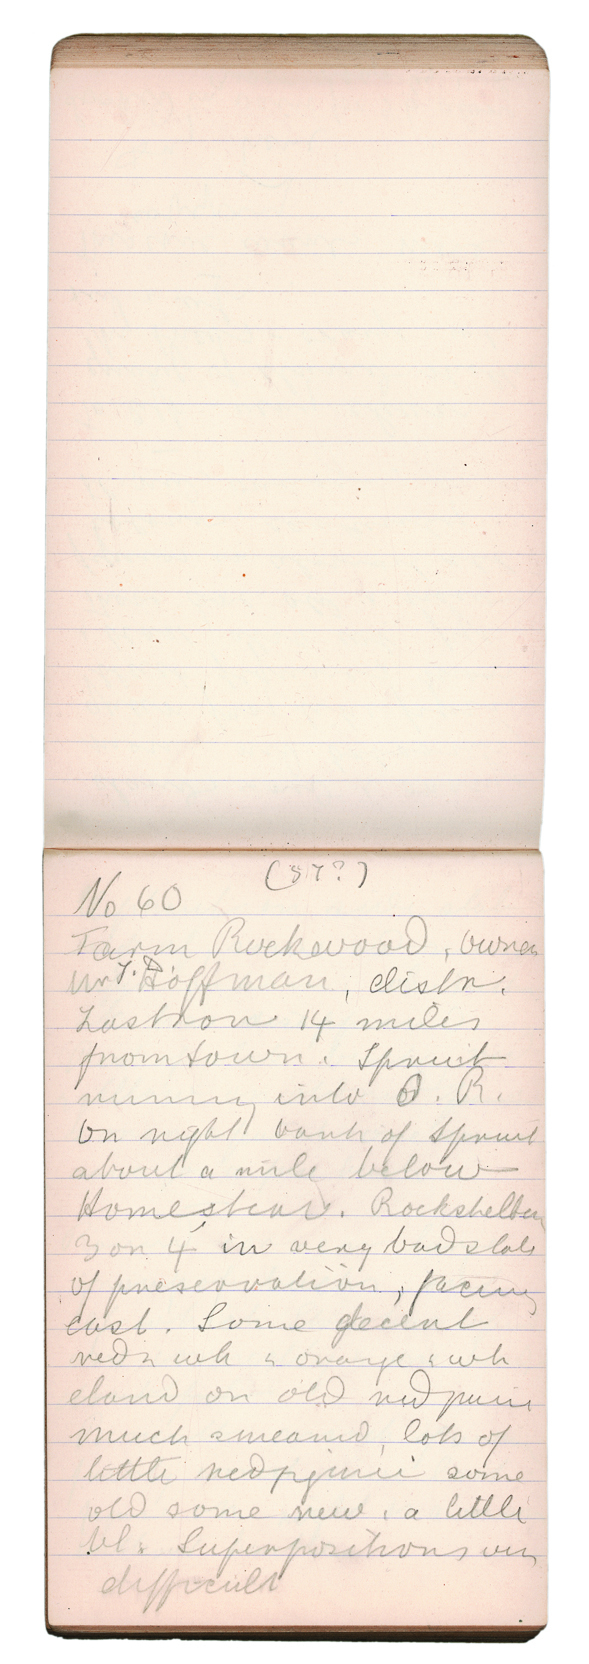 (57?)
No 60
Farm Rockwood, owner
Mr T. P. Hoffman, distr.
Lastron 14 miles
from town. Spruit
running into O. R.
On right bank of Spruit
about a mile below
Homestead. Rockshelter
3 on 4' in very bad state
of preservation, facing
east. Some decent
red & wh & orange & wh
eland on old red
much smeared, lots of
little red pigmii some
old some new, a little
bl. Superpositions very
difficult